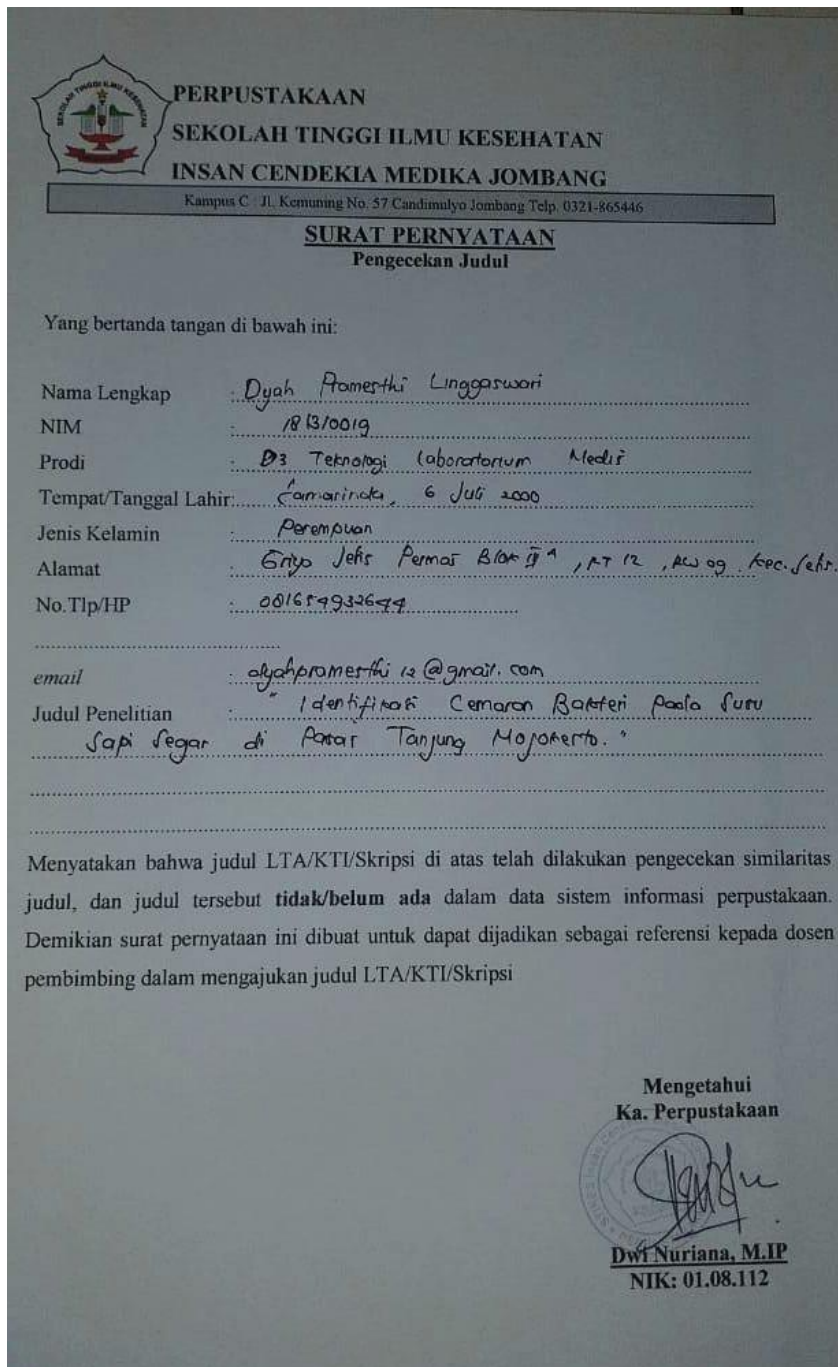 SEKOLAH TINGGI ILMU KESEHATAN
PERPUSTAKAAN
SEKOLAH TINGGI ILMU KESEHATAN
INSAN CENDEKIA MEDIKA JOMBANG
Kampus C : Jl. Kemuning No. 57 Candimulyo Jombang Telp. 0321-865446
SURAT PERNYATAAN
Pengecekan Judul
Yang bertanda tangan di bawah ini:
Nama Lengkap : Dyah Pramesthi Linggaswari
NIM : 181310019
Prodi : D3 Teknologi Laboratorium Medis
Tempat/Tanggal Lahir: Samarinda, 6 Juli 2000
Jenis Kelamin : Perempuan
Alamat : Griyo Jetis Permai Blok , RT 12, RW 09 Kec. Jetis.
No.Tlp/HP :
email : dyahpramesthi12@gmail.com
Judul Penelitian : "Identifikasi Cemaran Bakteri pada Susu
Sapi Segar di Pasar Tanjung Mojokerto."
Menyatakan bahwa judul LTA/KTI/Skripsi di atas telah dilakukan pengecekan similaritas
judul, dan judul tersebut tidak/belum ada dalam data sistem informasi perpustakaan.
Demikian surat pernyataan ini dibuat untuk dapat dijadikan sebagai referensi kepada dosen
pembimbing dalam mengajukan judul LTA/KTI/Skripsi
Mengetahui
Ka. Perpustakaan
Dwi Nuriana, M.IP
NIK: 01.08.112